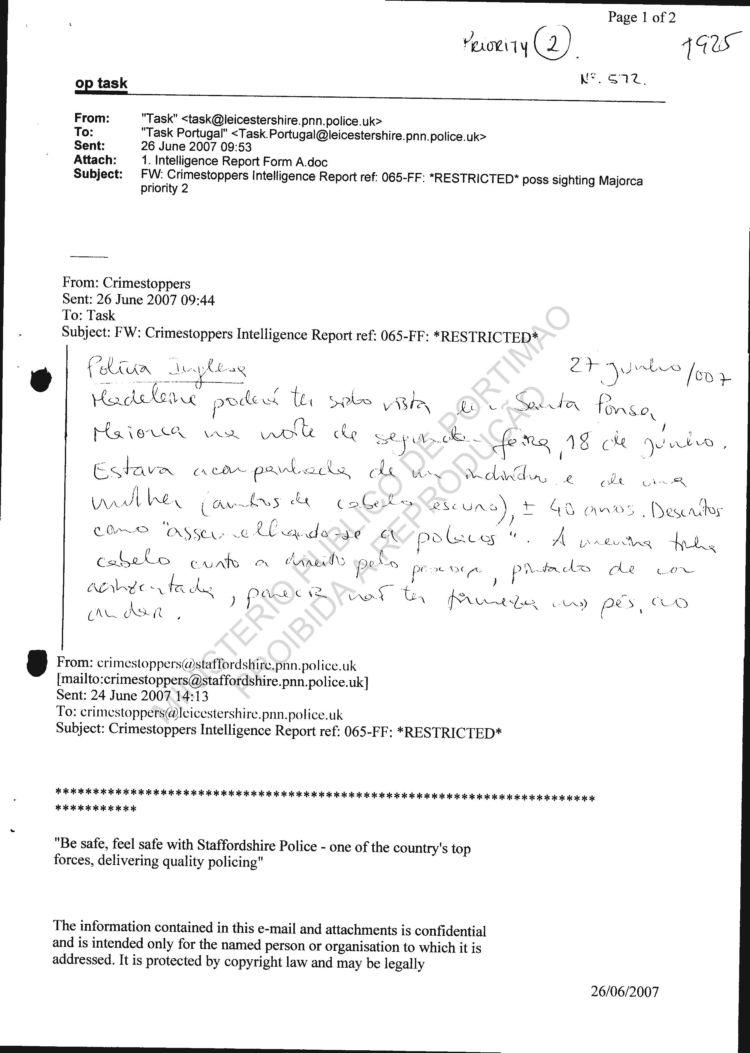 Page 1 of 2
PRIORITY 2.
1925
Nº. 572.
op task
From: "Task" <task@leicestershire.pnn.police.uk>
To: "Task Portugal" <Task.Portugal@leicestershire.pnn.police.uk>
Sent: 26 June 2007 09:53
Attach: 1. Intelligence Report Form A.doc
Subject: FW: Crimestoppers Intelligence Report ref: 065-FF: *RESTRICTED* poss sighting Majorca
priority 2
From: Crimestoppers
Sent: 26 June 2007 09:44
To: Task
Subject: FW: Crimestoppers Intelligence Report ref: 065-FF: *RESTRICTED*
Polícia Inglesa 27 junho/007
Madeleine poderá ter sido vista em Santa Ponsa,
Maiorca na noite de segunda feira, 18 de junho.
Estava acompanhada de um indivíduo e de uma
mulher (ambos de cabelo escuro), ± 40 anos. Descritos
como "assemelhando-se a polacos". A menina tinha
cabelo curto a direito pelo pescoço, pintado de cor
acinzentada, parecia não ter firmeza nos pés, ao
andar.
MINISTERIO PUBLICO DE PORTIMAO
PROIBIDA A REPRODUÇÃO
From: crimestoppers@staffordshire.pnn.police.uk
[mailto:crimestoppers@staffordshire.pnn.police.uk]
Sent: 24 June 2007 14:13
To: crimestoppers@leicestershire.pnn.police.uk
Subject: Crimestoppers Intelligence Report ref: 065-FF: *RESTRICTED*
************************************************************************
***********
"Be safe, feel safe with Staffordshire Police - one of the country's top
forces, delivering quality policing"
The information contained in this e-mail and attachments is confidential
and is intended only for the named person or organisation to which it is
addressed. It is protected by copyright law and may be legally
26/06/2007